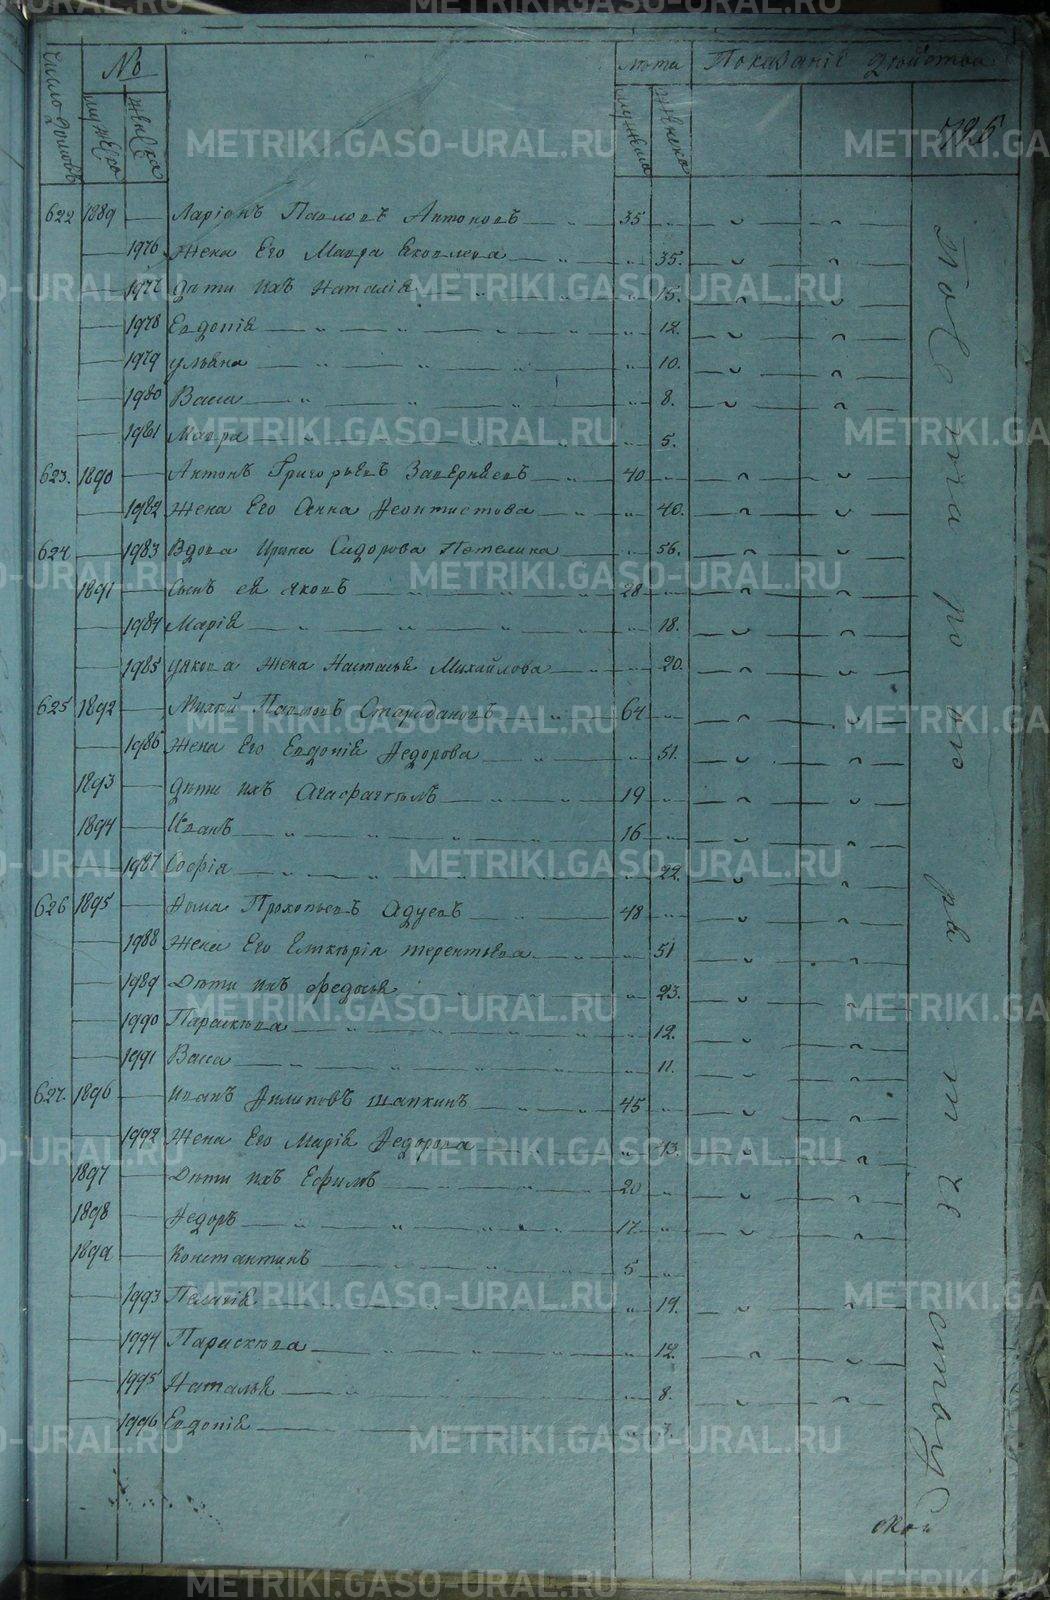 число домовъ
№
мужеска
женска
лѣта
мужеска
женска
Показаніе
622 1889 Ларіонъ Павловъ Антоновъ 35
1976 Жена Его Мавра Яковлева 35.
1977 Дѣти Ихъ Наталія 15.
1978 Евдокія 12.
1979 Ульяна 10.
1980 Васса 8.
1981 Мавра 5.
623. 1890 Антонъ Григорьевъ 40
1982 Жена Его Анна Леонтистова 40.
624 1983 Вдова Ирина Сидорова 56.
1891 Сынъ ея Яковъ 28
1984 Марія 18.
1985 Якова Жена Настасья Михайлова 20.
625 1892 Павловъ 64
1986 Жена Его Евдокія Ѳедорова 51.
1893 Дѣти Ихъ 19
1894 Иванъ 16
1987 Софія 22.
626 1895 Ѳома Прокопьевъ Адуевъ 48
1988 Жена Его Терентьева 51
1989 Дѣти Ихъ Федосья 23.
1990 Параскѣва 12.
1991 Васса 11.
627. 1896 Иванъ Ѳилиповъ Шапкинъ 45
1992 Жена Его Марія Ѳедорова 43.
1897 Дѣти Ихъ Ефимъ 20
1898 Ѳедоръ 17
1899 Константинъ 5
1993 Пелагія 19.
1994 Параскѣва 12.
1995 Наталья 8.
1996 Евдокія 3.
METRIKI.GASO-URAL.RU